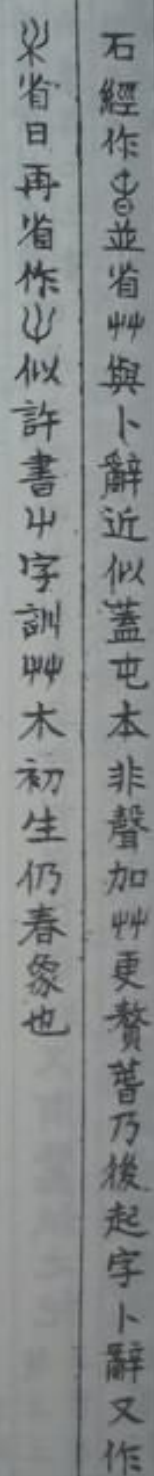 石經作並省艸與卜辭近似蓋屯本非聲加艸更贅萅乃後起字卜辭又作
省日再省作似許書屮字訓艸木初生仍春象也